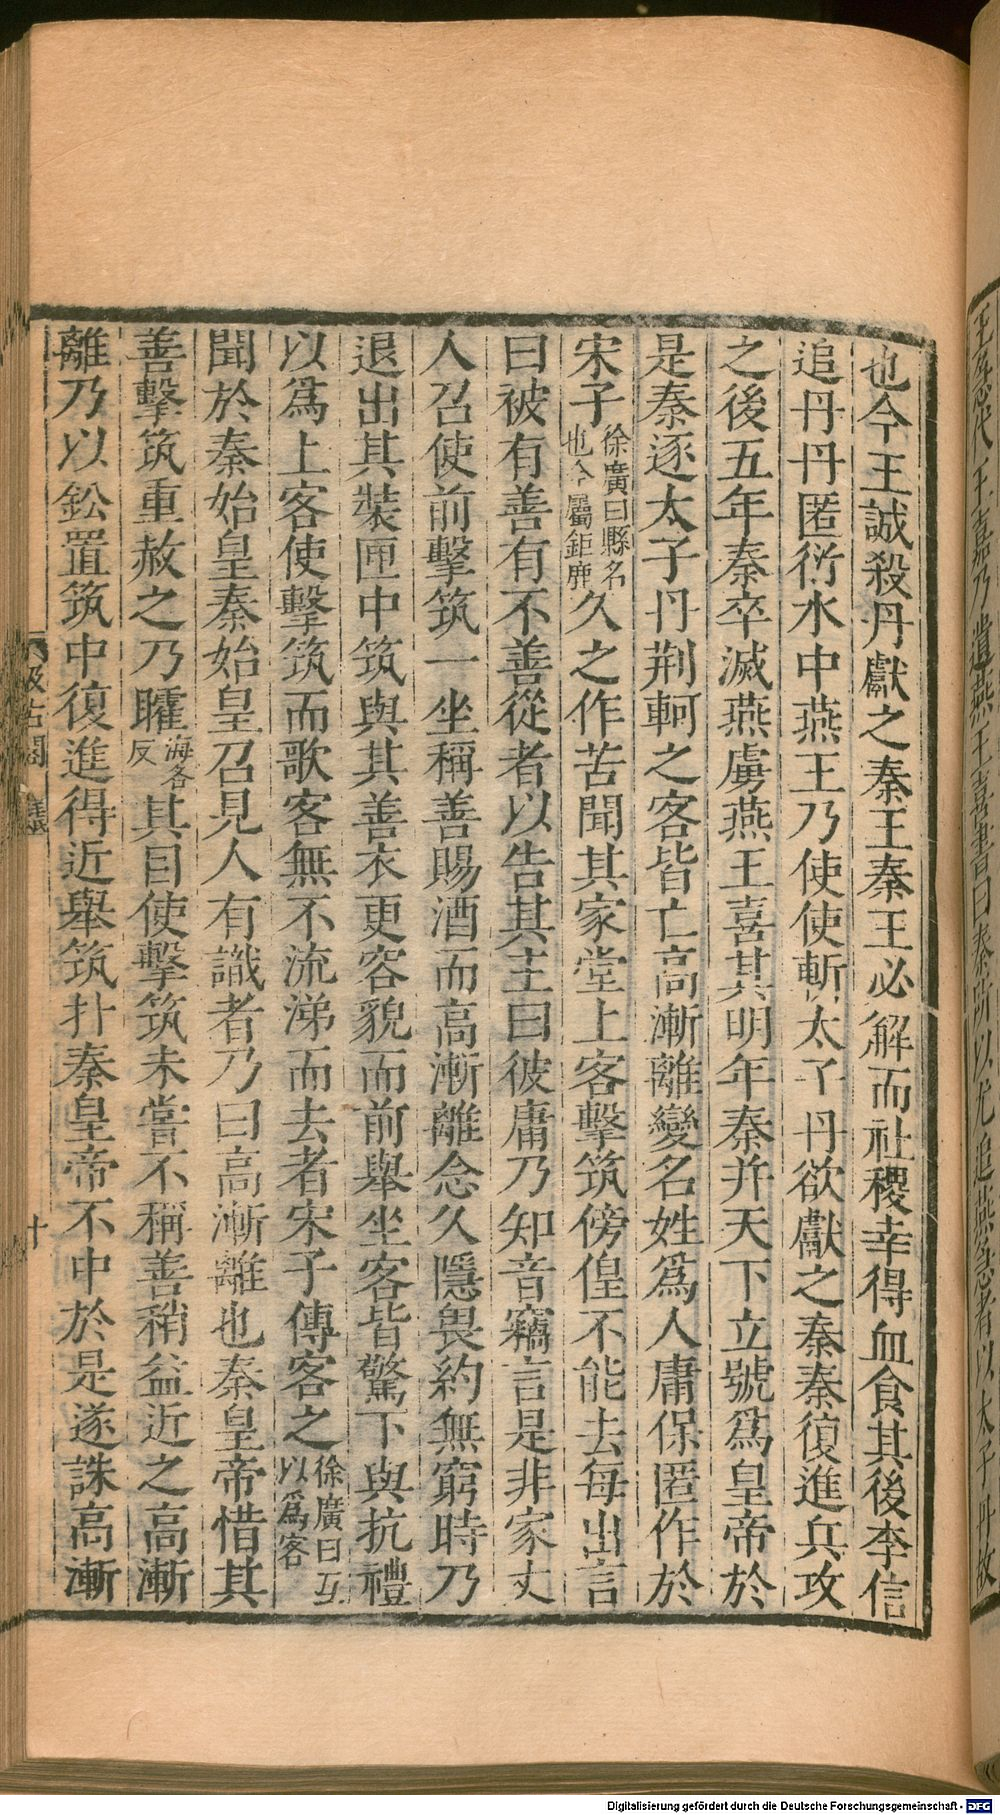 也今王誠殺丹獻之秦王秦王必解而社稷幸得血食其後李信
追丹丹匿衍水中燕王乃使使斬太子丹欲獻之秦秦復進兵攻
之後五年秦卒滅燕虜燕王喜其明年秦并天下立號爲皇帝於
是秦逐太子丹荆軻之客皆亡高漸離變名姓爲人庸保匿作於
宋子徐廣曰縣名也今屬鉅鹿久之作苦聞其家堂上客擊筑傍偟不能去每出言
曰彼有善有不善從者以告其主曰彼庸乃知音竊言是非家丈
人召使前擊筑一坐稱善賜酒而高漸離念久隱畏約無窮時乃
退出其裝匣中筑與其善衣更容貌而前舉坐客皆驚下與抗禮
以爲上客使擊筑而歌客無不流涕而去者宋子傳客之徐廣曰互以爲客
聞於秦始皇秦始皇召見人有識者乃曰高漸離也秦皇帝惜其
善擊筑重赦之乃矐海各反其目使擊筑未嘗不稱善稍益近之高漸
離乃以鈆置筑中復進得近舉筑扑秦皇帝不中於是遂誅高漸
汲古閣
十
王喜書曰秦所以尤追燕急者以太子丹故
Digitalisierung gefördert durch die Deutsche Forschungsgemeinschaft - DFG